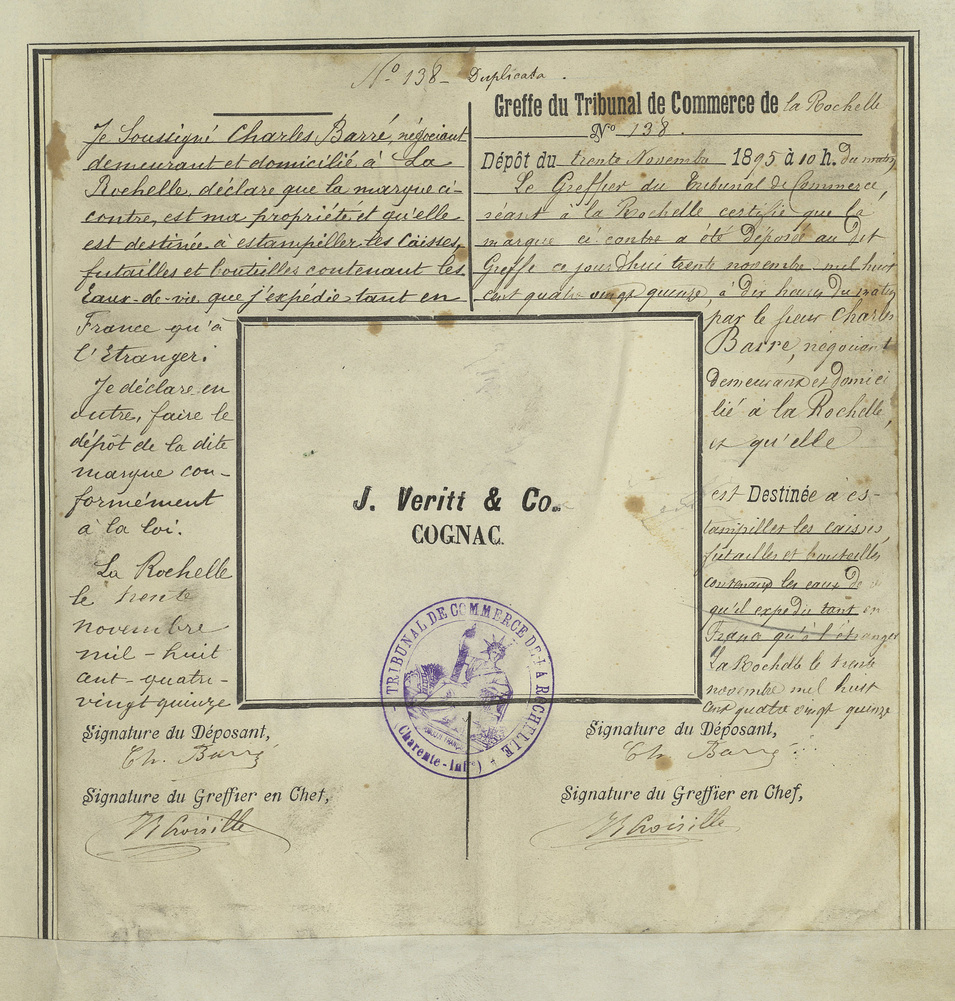 Nº 138 - Duplicata.
Je Soussigné Charles Barré, négociant
demeurant et domicilié à La
Rochelle, déclare que la marque ci-
contre, est ma propriété, et qu'elle
est destinée à estampiller les Caisses,
futailles et bouteilles contenant les
Eaux-de-vie que j'expédie tant en
France qu'à
l'étranger.
Je déclare en
outre, faire le
dépôt de la dite
marque con-
formément
à la loi.
La Rochelle
le trente
novembre
mil-huit
cent-quatre-
vingt quinze
Signature du Déposant,
Ch. Barré
Signature du Greffier en Chef,
Greffe du Tribunal de Commerce de la Rochelle
Nº 138.
Dépôt du trente Novembre 1895 à 10 h. du matin
Le Greffier du Tribunal de Commerce,
séant à la Rochelle certifie que la
marque ci-contre a été déposée au dit
Greffe ce jourd'hui trente novembre mil huit
cent quatre vingt quinze, à dix heures du matin
par le sieur Charles
Barré, négociant
demeurant et domici
lié à la Rochelle,
et qu'elle
est Destinée à es-
tampiller les caisses
futailles et bouteilles
contenant les eaux de
qu'il expédie tant en
France qu'à l'étranger
La Rochelle le trente
novembre mil huit
cent quatre vingt quinze
Signature du Déposant,
Ch. Barré
Signature du Greffier en Chef,
J. Veritt & Co.
COGNAC.
TRIBUNAL DE COMMERCE DE LA ROCHELLE
(Charente-Infre)